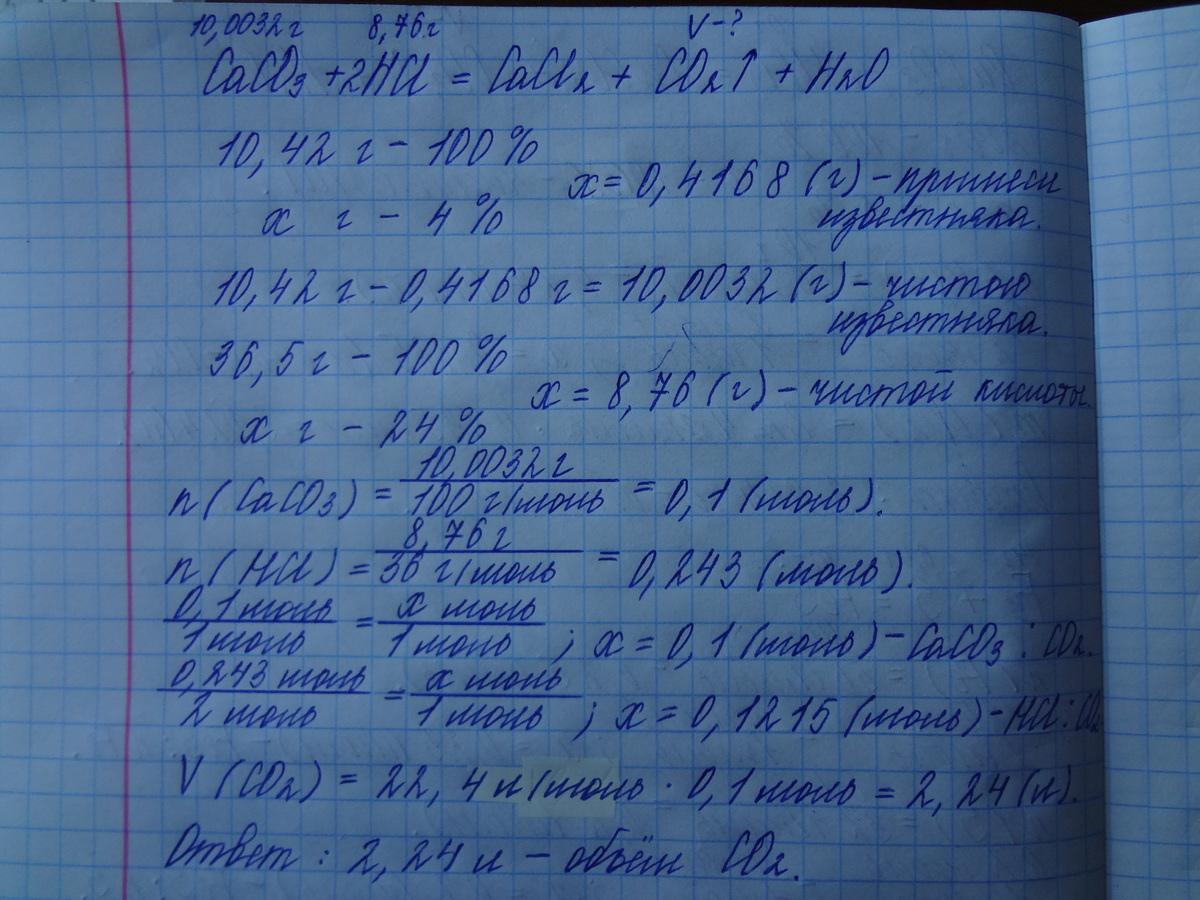 10,0032 г 8,76 г V-?
CaCO3 + 2HCl = CaCl2 + CO2↑ + H2O
10,42 г - 100 %
x = 0,4168 (г) - примеси
x г - 4 %
известняка.
10,42 г - 0,4168 г = 10,0032 (г) - чистого
известняка.
36,5 г - 100 %
x = 8,76 (г) - чистой кислоты.
x г - 24 %
10,0032 г
n (CaCO3) = 100 г/моль = 0,1 (моль).
8,76 г
n (HCl) = 36 г/моль = 0,243 (моль).
0,1 моль = x моль
1 моль 1 моль ; x = 0,1 (моль) - CaCO3 : CO2.
0,243 моль = x моль
2 моль 1 моль ; x = 0,1215 (моль) - HCl : CO2
V (CO2) = 22,4 л/моль · 0,1 моль = 2,24 (л).
Ответ : 2,24 л - объём CO2.